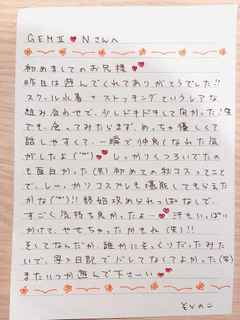 GEMⅡ♥Nさんへ
初めましてのお兄様♥
昨日は遊んでくれてありがとうでした!!
スク水着+ストッキングというレアな
組み合わせで、少しドキドキして向かった!笑
でも、会ってみたらまず、めっちゃ優しくて
話しやすくて、一瞬で仲良くなれた気
がしたよ(˘˘)♥しっかりくつろいでたの
も面白かった(笑)初めての秋コスってこと
で、しっかりコスプレも堪能してもらえた
かな(˘˘)!!終始攻められっぱなしで、
すごく気持ち良かったよ…♥汗もいっぱい
かけて、やせちゃったかもね(笑)!!
そしてなんだか、誰かにそっくりだったみた
いで、写メ日記でバレてなくてよかった(笑)
またいつか遊んで下さい♥
そらのこ